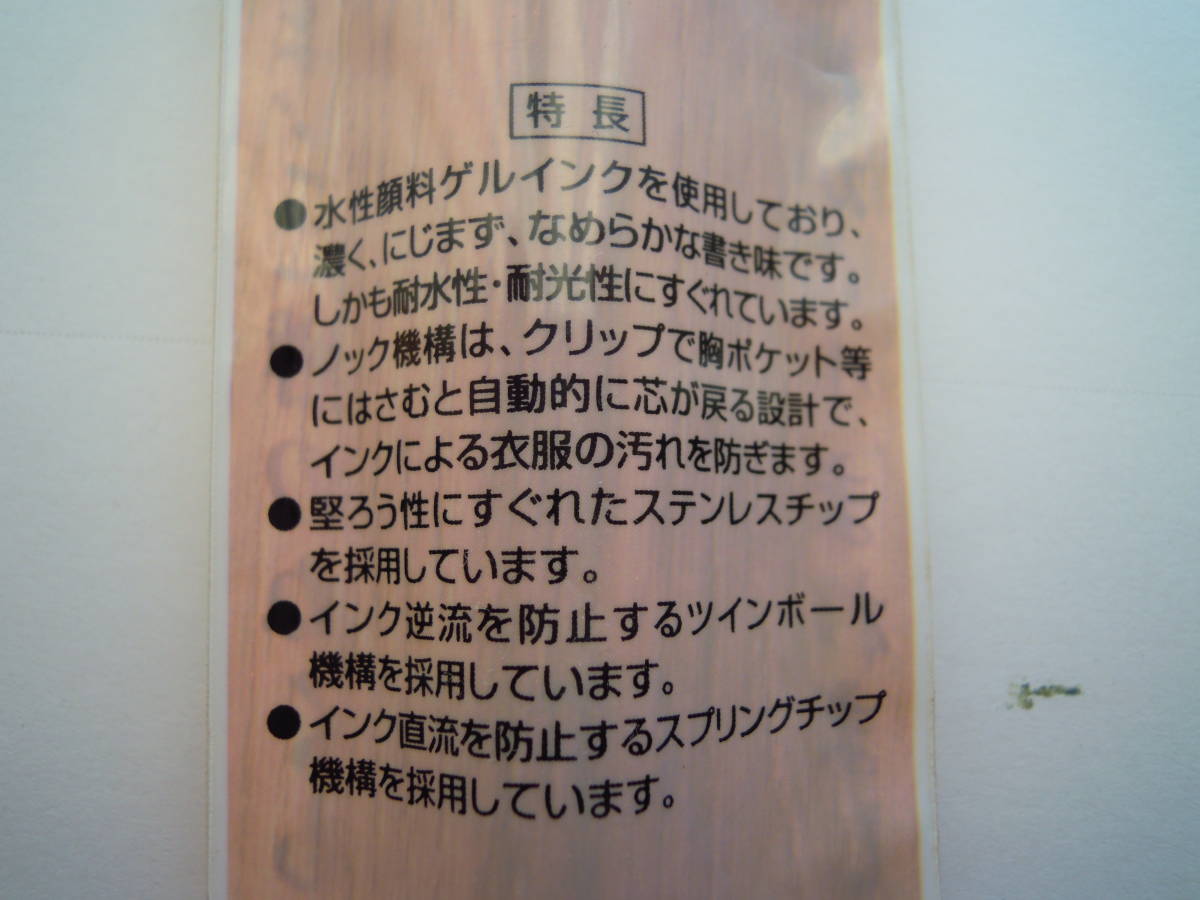 特長
●水性顔料ゲルインクを使用しており、
濃く、にじまず、なめらかな書き味です。
しかも耐水性・耐光性にすぐれています。
●ノック機構は、クリップで胸ポケット等
にはさむと自動的に芯が戻る設計で、
インクによる衣服の汚れを防ぎます。
●堅ろう性にすぐれたステンレスチップ
を採用しています。
●インク逆流を防止するツインボール
機構を採用しています。
●インク直流を防止するスプリングチップ
機構を採用しています。